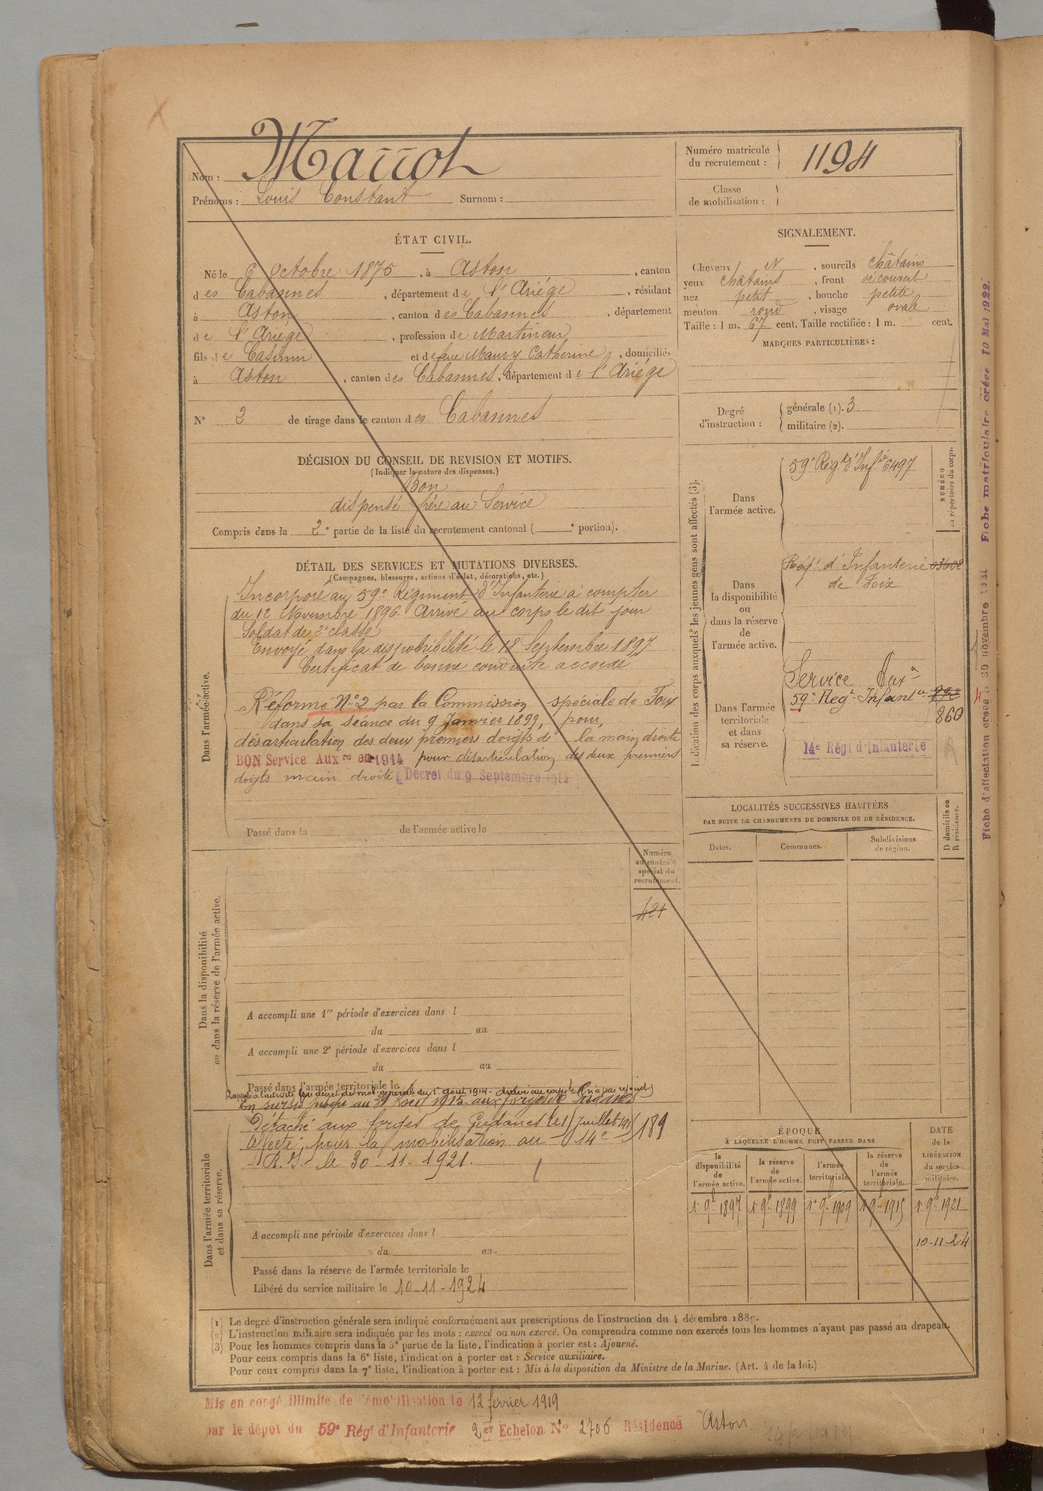 Nom : Marrot
Prénoms : Louis Constant Surnom :
Numéro matricule du recrutement : 1194
Classe de mobilisation :
ÉTAT CIVIL.
Né le 6 Octobre 1875, à Aston, canton
des Cabannes, département de l'Ariége, résidant
à Aston, canton des Cabannes, département
de l'Ariége, profession de Martineur
fils de Casimir et de feue Maury Catherine, domiciliés
à Aston, canton des Cabannes, département de l'Ariége
N° 2 de tirage dans le canton des Cabannes
SIGNALEMENT.
Cheveux et, sourcils châtains
yeux châtains, front découvert
nez petit, bouche petite
menton rond, visage ovale
Taille : 1 m. 67 cent. Taille rectifiée : 1 m. cent.
MARQUES PARTICULIÈRES :
Degré d'instruction : générale (1). 3
militaire (2).
DÉCISION DU CONSEIL DE REVISION ET MOTIFS.
(Indiquer la nature des dispenses.)
Bon
dispensé frère au Service
Compris dans la 2e partie de la liste du recrutement cantonal ( e portion).
DÉTAIL DES SERVICES ET MUTATIONS DIVERSES.
(Campagnes, blessures, actions d'éclat, décorations, etc.)
Dans l'armée active.
Incorporé au 59e Régiment d'Infanterie à compter
du 12 Novembre 1896 Arrivé au corps le dit jour
Soldat de 2e classe
Envoyé dans la disponibilité le 18 Septembre 1897
Certificat de bonne conduite accordé
Réformé N° 2 par la Commission spéciale de Foix
dans sa séance du 9 janvier 1899, pour,
désarticulation des deux premiers doigts de la main droite
BON Service Auxre en 1914 pour désarticulation des deux premiers
doigts main droite Décret du 9 Septembre 1914
Passé dans la de l'armée active le
Indication des corps auxquels les jeunes gens sont affectés (3).
NUMÉRO au répertoire du corps.
Dans l'armée active.
59e Régt d'Infie 6497
Dans la disponibilité ou dans la réserve de l'armée active.
Régt d'Infanterie
de Foix
Dans l'armée territoriale et dans sa réserve.
Service Auxre
59e Regt Infanie
860
14e Régt d'Infanterie
LOCALITÉS SUCCESSIVES HABITÉES
PAR SUITE DE CHANGEMENTS DE DOMICILE OU DE RÉSIDENCE.
D domicile ou R résidence.
Dates. Communes. Subdivisions de région.
Numéro au contrôle spécial du recrutement.
421
Dans la disponibilité ou dans la réserve de l'armée active.
A accompli une 1re période d'exercices dans l
du au
A accompli une 2e période d'exercices dans l
du au
Passé dans l'armée territoriale le
Dans l'armée territoriale et dans sa réserve.
Détaché aux forges de Gudanes le 1 Juillet 191
189
Affecté pour la mobilisation au 14e
R.I. le 30-11-1921.
A accompli une période d'exercices dans l
du au
Passé dans la réserve de l'armée territoriale le
Libéré du service militaire le 10-11-1924
ÉPOQUE
À LAQUELLE L'HOMME DOIT PASSER DANS
la disponibilité de l'armée active. la réserve de l'armée active. l'armée territoriale. la réserve de l'armée territoriale.
DATE de la LIBÉRATION du service militaire.
1er 9bre 1897 1er 9bre 1899 1er 9bre 1909 1er 9bre 1915 1er 9bre 1921
10-11-24
(1) Le degré d'instruction générale sera indiqué conformément aux prescriptions de l'instruction du 4 décembre 1889.
(2) L'instruction militaire sera indiquée par les mots : exercé ou non exercé. On comprendra comme non exercés tous les hommes n'ayant pas passé au drapeau.
(3) Pour les hommes compris dans la 5e partie de la liste, l'indication à porter est : Ajourné.
Pour ceux compris dans la 6e liste, l'indication à porter est : Service auxiliaire.
Pour ceux compris dans la 7e liste, l'indication à porter est : Mis à la disposition du Ministre de la Marine. (Art. 4 de la loi.)
Mis en congé illimité de démobilisation le 12 fevrier 1919
par le dépôt du 59e Régt d'Infanterie 2e Echelon N° 2706 Résidence Aston
Fiche d'affectation créée le 30 novembre 1921 Fiche matriculaire créée 10 Mai 1922.